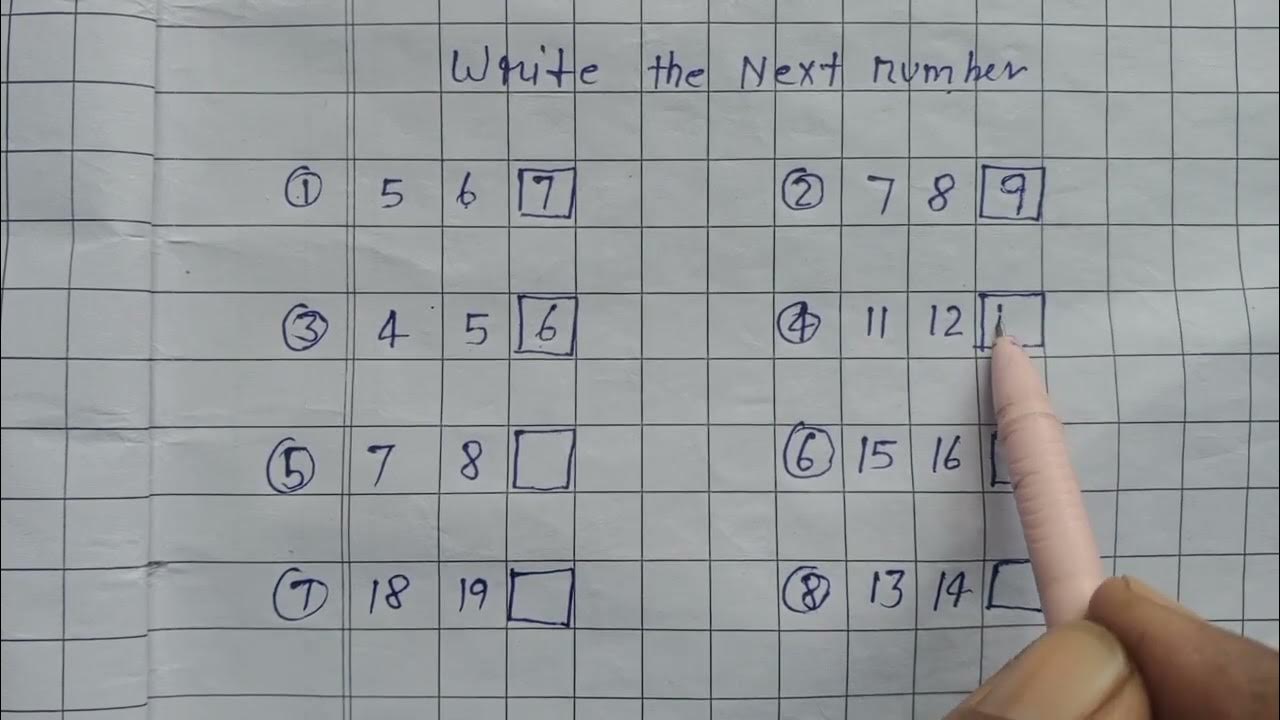 Write the Next number
① 5 6 7 ② 7 8 9
③ 4 5 6 ④ 11 12 1
⑤ 7 8 ⑥ 15 16
⑦ 18 19 ⑧ 13 14